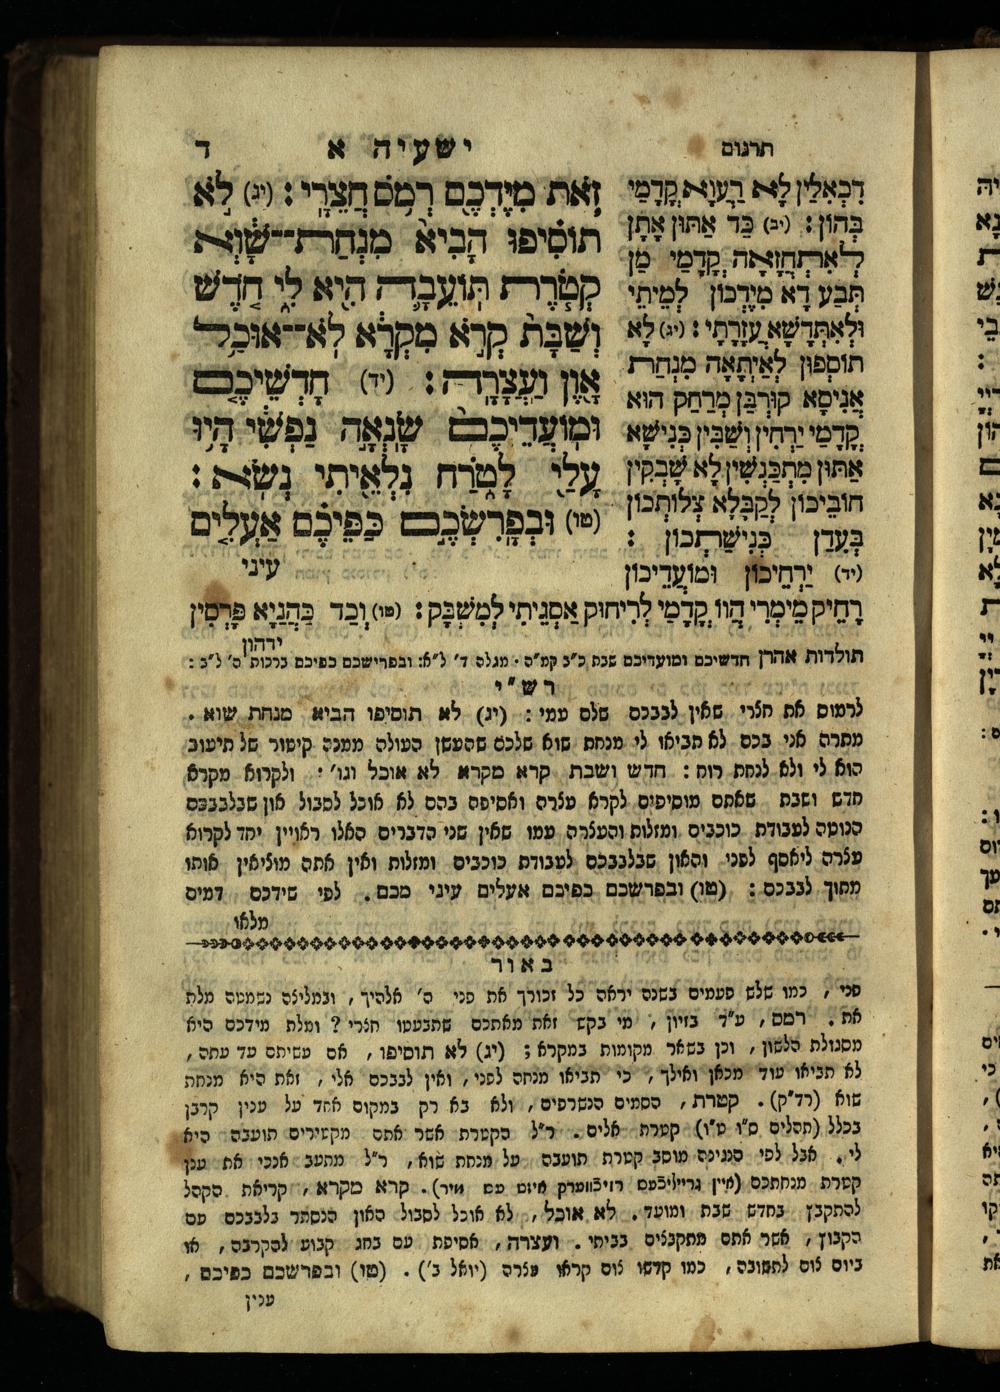 תרגום
ישעיה א
ד
זֹאת מִיֶּדְכֶם רְמֹס חֲצֵרָי : (יג) לֹא
תוֹסִיפוּ הָבִיא מִנְחַת־־שָׁוְא
קְטֹרֶת תּוֹעֵבָה הִיא לִי חֹדֶשׁ
וְשַׁבָּת קְרֹא מִקְרָא לֹא־־אוּכַל
אָוֶן וַעֲצָרָה : (יד) חָדְשֵׁיכֶם
וּמוֹעֲדֵיכֶם שָׂנְאָה נַפְשִׁי הָיוּ
עָלַי לָטֹרַח נִלְאֵיתִי נְשֹׂא :
(טו) וּבְפָרִשְׂכֶם כַּפֵּיכֶם אַעְלִים
עיני
דִכְאִלֵין לָא רַעֲוָא קֳדָמַי
בְּהוֹן : (יב) כַּד אַתּוּן אָתָן
לְאִתְחֲזָאָה קֳדָמַי מַן
תְּבַע דָא מִיֶדְכוֹן לְמֵיתֵי
וּלְאִתְּדָשָׁא עֲזָרָתִי : (יג) לָא
תוֹסְפוּן לְאַיְתָאָה מִנְחַת
אֲנִיסָא קוּרְבַּן מְרַחַק הוּא
קֳדָמַי יַרְחִין וְשַׁבִּין כְּנִישָׁא
אַתּוּן מִתְכַּנְשִׁין לָא שָׁבְקִין
חוֹבֵיכוֹן לְקַבָּלָא צְלוֹתְכוֹן
בְּעִדַן כְּנִישַׁתְכוֹן :
(יד) יַרְחֵיכוֹן וּמוֹעֲדֵיכוֹן
רָחֵיק מֵימְרִי הֲווֹ קֳדָמַי לְרִיחוּק אַסְגֵיתִי לְמִשְׁבָּק : (טו) וְכַד כַּהֲנַיָא פָּרְסִין
ידהון
תולדות אהרן חדשיכם ומועדיכם שבת כ״ב קמ״ה · מגלה ד׳ ל״א: ובפרישכם כפיכם ברכות ה׳ ל״ב :
רש״י
לרמוס את חצרי שאין לבבכם שלם עמי : (יג) לא תוסיפו הביא מנחת שוא .
מתרה אני בכם לא תביאו לי מנחת שוא שלכם שהעשן העולה ממנה קיטור של תיעוב
הוא לי ולא לנחת רוח : חדש ושבת קרא מקרא לא אוכל וגו׳ · ולקרוא מקרא
חדש ושבת שאתם מוסיפים לקרא עצרה ואסיפה בהם לא אוכל לסבול און שבלבבכם
הנוטה לעבודת כוכבים ומזלות והעצרה עמו שאין שני הדברים האלו ראויין יחד לקרוא
עצרה ליאסף לפני והאון שבלבבכם לעבודת כוכבים ומזלות ואין אתה מוציאין אותו
מתוך לבבכם : (טו) ובפרשכם כפיכם אעלים עיני מכם . לפי שידכם דמים
מלאו
באור
פני , כמו שלש פעמים בשנה יראה כל זכורך את פני ה׳ אלהיך , ובמליצה נשמטה מלת
את . רמס , ע״ד בזיון , מי בקש זאת מאתכם שתבעטו חצרי ? ומלת מידכם היא
מסגולת הלשון , וכן בשאר מקומות במקרא ; (יג) לא תוסיפו , אם עשיתם עד עתה ,
לא תביאו עוד מכאן ואילך , כי תביאו מנחה לפני , ואין לבבכם אלי , זאת היא מנחת
שוא (רד״ק) . קטרת , הסמים הנשרפים , ולא בא רק במקום אחד על ענין קרבן
בכלל (תהלים ס״ו ט״ו) קטרת אלים . ר״ל הקטרת אשר אתם מקטירים תועבה היא
לי . אבל לפי הנגינה מוסב קטרת תועבה על מנחת שוא , ר״ל מתעב אנכי את ענן
קטרת מנחתכם . קרא מקרא , קריאת הקהל
להתקבץ בחדש שבת ומועד . לא אוכל , לא אוכל לסבול האון הנסתר בלבבכם עם
הקבוץ , אשר אתם מתקבצים בביתי . ועצרה , אסיפת עם בחג קבוע להקרבה , או
ביום צום לתשובה , כמו קדשו צום קראו עצרה (יואל ב׳) . (טו) ובפרשכם כפיכם ,
ענין